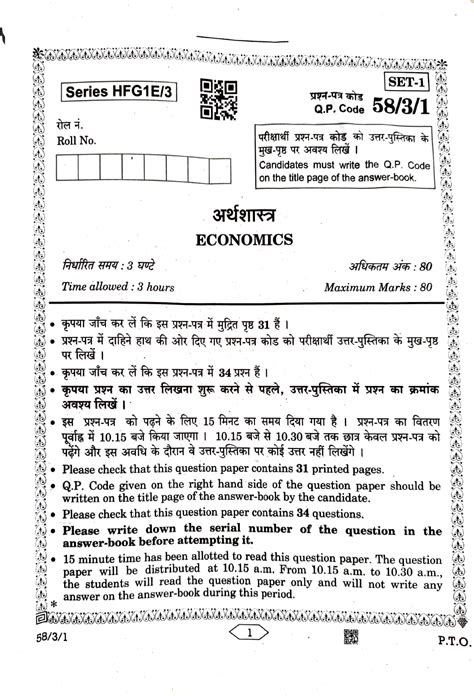 SET-1
Series HFG1E/3
प्रश्न-पत्र कोड
Q.P. Code 58/3/1
रोल नं.
Roll No.
परीक्षार्थी प्रश्न-पत्र कोड को उत्तर-पुस्तिका के
मुख-पृष्ठ पर अवश्य लिखें ।
Candidates must write the Q.P. Code
on the title page of the answer-book.
अर्थशास्त्र
ECONOMICS
निर्धारित समय : 3 घण्टे
अधिकतम अंक : 80
Time allowed : 3 hours
Maximum Marks : 80
• कृपया जाँच कर लें कि इस प्रश्न-पत्र में मुद्रित पृष्ठ 31 हैं ।
• प्रश्न-पत्र में दाहिने हाथ की ओर दिए गए प्रश्न-पत्र कोड को परीक्षार्थी उत्तर-पुस्तिका के मुख-पृष्ठ
पर लिखें ।
• कृपया जाँच कर लें कि इस प्रश्न-पत्र में 34 प्रश्न हैं ।
• कृपया प्रश्न का उत्तर लिखना शुरू करने से पहले, उत्तर-पुस्तिका में प्रश्न का क्रमांक
अवश्य लिखें ।
• इस प्रश्न-पत्र को पढ़ने के लिए 15 मिनट का समय दिया गया है । प्रश्न-पत्र का वितरण
पूर्वाह्न में 10.15 बजे किया जाएगा । 10.15 बजे से 10.30 बजे तक छात्र केवल प्रश्न-पत्र को
पढ़ेंगे और इस अवधि के दौरान वे उत्तर-पुस्तिका पर कोई उत्तर नहीं लिखेंगे ।
• Please check that this question paper contains 31 printed pages.
• Q.P. Code given on the right hand side of the question paper should be
written on the title page of the answer-book by the candidate.
• Please check that this question paper contains 34 questions.
• Please write down the serial number of the question in the
answer-book before attempting it.
• 15 minute time has been allotted to read this question paper. The question
paper will be distributed at 10.15 a.m. From 10.15 a.m. to 10.30 a.m.,
the students will read the question paper only and will not write any
answer on the answer-book during this period.
58/3/1
1
P.T.O.